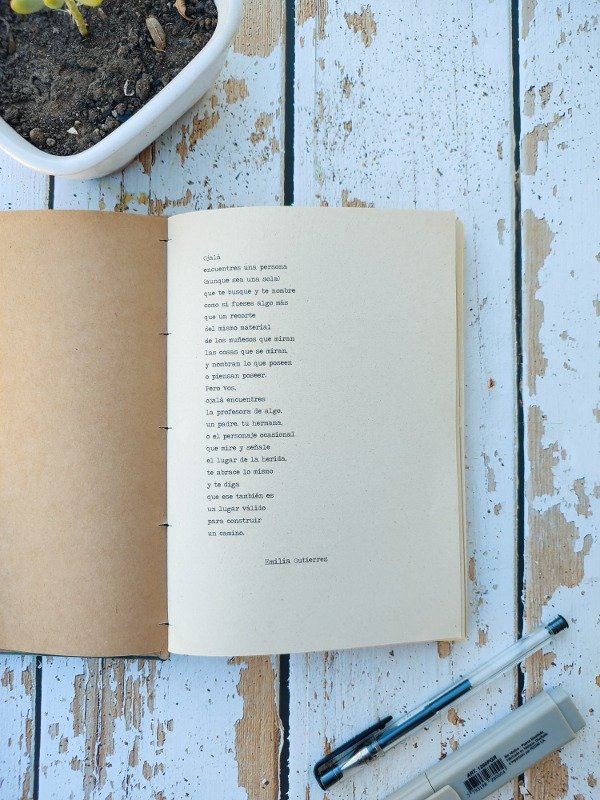 Ojalá
encuentres una persona
(aunque sea una sola)
que te busque y te nombre
como si fueses algo más
que un recorte
del mismo material
de los muñecos que miran
las cosas que se miran,
y nombran lo que poseen
o piensan poseer.
Pero vos,
ojalá encuentres
la profesora de algo,
un padre, tu hermana,
o el personaje ocasional
que mire y señale
el lugar de la herida,
te abrace lo mismo
y te diga
que ese también es
un lugar válido
para construir
un camino.
Emilia Gutierrez